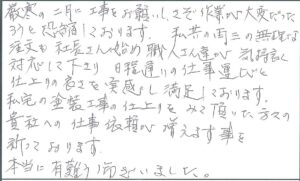 厳寒の二月に工事をお願いしさぞ作業が大変だった
ろうと恐縮しております。私共の再三の無理な
注文も社長さん始め職人さん達が気持良く
対応して下さり日程通りの仕事運びと
仕上りの良さを実感し満足しております。
私宅の塗装工事の仕上りをみて頂いた方々の
貴社への仕事依頼が増えます事を
祈っております。
本当に有難う御ざいました。